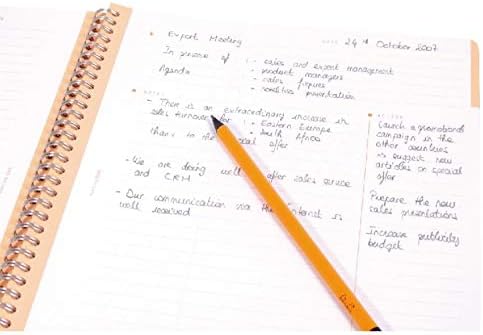 Export Meeting
24th October 2007
In presence of : - sales and export management
Agenda
- product managers
- sales figures
- novelties presentation
NOTES
- There is an extraordinary increase in
sales turnover for : - Eastern Europe
- South Africa
thanks to the special offer
- We are doing well after sales service
and CRM
- Our communication via the internet is
well received
ACTION
Launch a promotional
campaign in the
other countries
→ suggest new
articles on special
offer
Prepare the new
sales presentations
Increase publicity
budget